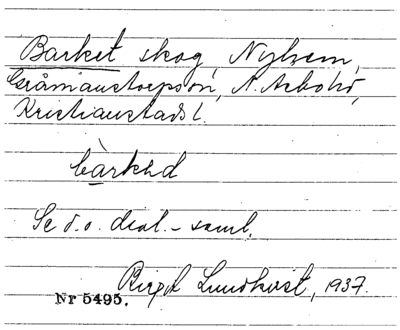 Barket skog, Nyhem,
Gråmanstorps sn, N. Åsbo hd,
Kristianstads l.
bàrkəd
Se d.o. dial.-saml.
Birgit Lundkvist, 1937.
Nr 5495.